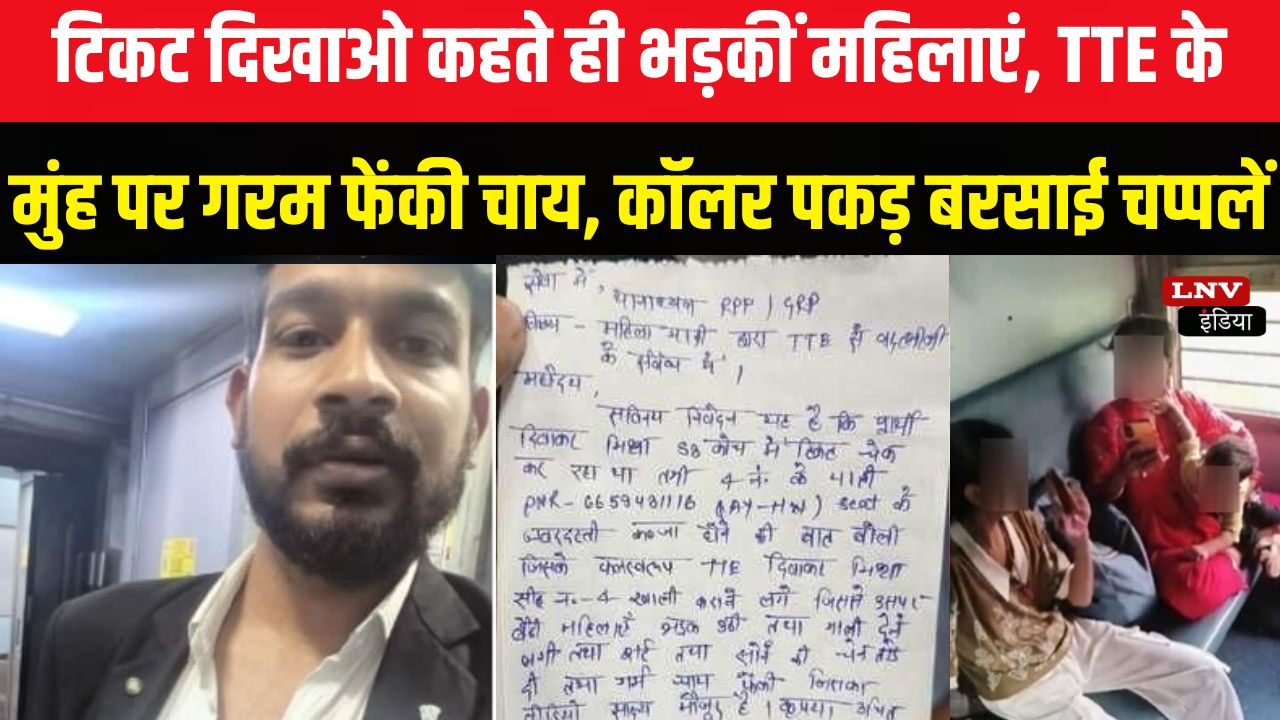 टिकट दिखाओ कहते ही भड़कीं महिलाएं, TTE के
मुंह पर गरम फेंकी चाय, कॉलर पकड़ बरसाई चप्पलें
LNV
इंडिया
सेवा में,
RPP / GRP
महिला यात्री द्वारा TTE से
के संबंध में।
महोदय,
सविनय निवेदन यह है कि प्रार्थी
दिवाकर मिश्रा S8 कोच में टिकट चेक
कर रहा था तभी 4 नं. के यात्री
seat के
होने की बात बोली
जिसके फलस्वरूप TTE दिवाकर मिश्रा
सीट नं.-4 खाली कराने लगे जिससे उसपर
बैठी महिलाएँ भड़क उठी तथा गाली देने
लगी तथा शर्ट तथा सोने की चेन तोड़
दी तथा गर्म चाय फेंकी जिसका
वीडियो साक्ष्य मौजूद है। कृपया उचित